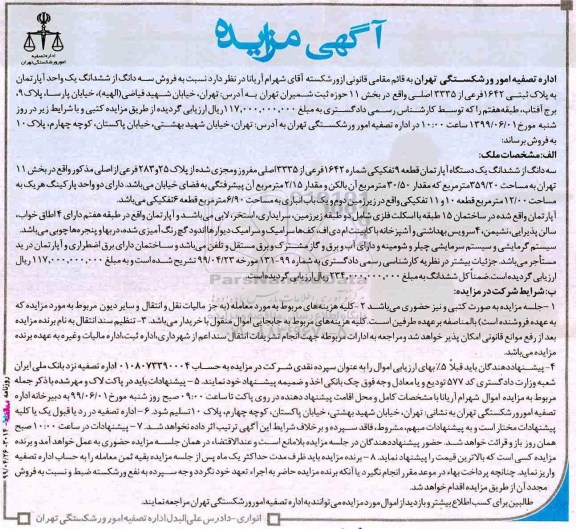 آگهی مزایده
اداره تصفیه
امور ورشکستگی تهران
اداره تصفیه امور ورشکستگی تهران به قائم مقامی قانونی از ورشکسته آقای شهرام آریانا در نظر دارد نسبت به فروش سه دانگ از ششدانگ یک واحد آپارتمان
به پلاک ثبتی ۱۶۴۲ فرعی از ۳۳۳۵ اصلی واقع در بخش ۱۱ حوزه ثبت شمیران تهران به آدرس: تهران، خیابان شهید فیاضی (الهیه)، خیابان پارسا، پلاک ۹،
برج آفتاب، طبقه هفتم را که توسط کارشناس رسمی دادگستری به مبلغ ۱۱۷,۰۰۰,۰۰۰,۰۰۰ ریال ارزیابی گردیده از طریق مزایده کتبی و با شرایط زیر در روز
شنبه مورخ ۱۳۹۹/۰۶/۰۱ ساعت ۱۰:۰۰ در اداره تصفیه امور ورشکستگی تهران به آدرس: تهران، خیابان شهید بهشتی، خیابان پاکستان، کوچه چهارم، پلاک ۱۰
به فروش برساند:
الف: مشخصات ملک:
سه دانگ از ششدانگ یک دستگاه آپارتمان قطعه ۹ تفکیکی شماره ۱۶۴۲ فرعی از ۳۳۳۵ اصلی مفروز و مجزی شده از پلاک ۲۵ و ۲۸۳ فرعی از اصلی مذکور واقع در بخش ۱۱
تهران به مساحت ۳۵۹/۲۰ مترمربع که مقدار ۳۰/۵۰ مترمربع آن بالکن و مقدار ۲/۱۵ مترمربع آن پیشرفتگی به فضای خیابان می‌باشد. دارای دو واحد پارکینگ هر یک به
مساحت ۱۲/۰۰ مترمربع قطعه ۱۰ و ۱۱ تفکیکی واقع در زیرزمین دوم و یک باب انباری به مساحت ۶/۹۰ مترمربع قطعه ۶ تفکیکی می‌باشد.
آپارتمان واقع شده در ساختمان ۱۵ طبقه با اسکلت فلزی شامل دو طبقه زیرزمین، سرایداری، استخر، لابی می‌باشد و آپارتمان واقع در طبقه هفتم دارای ۴ اطاق خواب،
سالن پذیرایی، نشیمن، ۴ سرویس بهداشتی و آشپزخانه با کابینت ام دی اف، کف‌ها سرامیک و سرامیک دیوارها اندود گچ رنگ آمیزی شده، دربها و پنجره‌ها چوبی می‌باشد.
سیستم گرمایشی و سیستم سرمایشی چیلر و شومینه و دارای آب و برق و گاز مشترک و برق مستقل و تلفن می‌باشد و ساختمان دارای برق اضطراری و آپارتمان در ید
مستأجر می‌باشد. جزئیات بیشتر در نظریه کارشناسی رسمی دادگستری به شماره ۹۹-۱۳۱ مورخه ۹۹/۰۴/۲۳ تشریح شده است و به مبلغ ۱۱۷,۰۰۰,۰۰۰,۰۰۰ ریال
ارزیابی گردیده است. ضمناً کل ششدانگ به مبلغ ۲۳۴,۰۰۰,۰۰۰,۰۰۰ ریال ارزیابی گردیده است.
ب: شرایط شرکت در مزایده:
۱- جلسه مزایده به صورت کتبی و نیز حضوری می‌باشد ۲- کلیه هزینه‌های مربوط به مورد معامله (به جز مالیات نقل و انتقال و سایر دیون مربوط به مورد مزایده که
به عهده فروشنده است) بالمناصفه بر عهده طرفین است. کلیه هزینه‌های مربوط به جابجایی اموال منقول با خریدار می‌باشد. ۳- تنظیم سند انتقال به نام برنده مزایده
بعد از رفع موانع قانونی امکان پذیر خواهد شد و مراجعه به ادارات مربوطه جهت انجام تشریفات انتقال سند اعم از شهرداری، اداره ثبت، اداره مالیات و غیره به عهده برنده
مزایده می‌باشد.
۴- پیشنهاددهندگان باید قبلاً ۵٪ بهای ارزیابی اموال را به عنوان سپرده نقدی شرکت در مزایده به حساب ۰۱۰۸۰۷۳۳۹۰۰۰۴ اداره تصفیه نزد بانک ملی ایران
شعبه وزارت دادگستری کد ۵۷۷ تودیع و یا معادل وجه فوق چک بانکی اخذ و ضمیمه پیشنهاد خود نمایند. ۵- پیشنهادات باید در پاکت لاک و مهر شده با ذکر جمله
مربوط به مزایده اموال شهرام آریانا با مشخصات کامل و محل اقامت پیشنهاد دهنده در روی پاکت تا ساعت ۰۹:۰۰ صبح روز شنبه مورخ ۹۹/۰۶/۰۱ به دبیرخانه اداره
تصفیه امور ورشکستگی تهران به نشانی: تهران، خیابان شهید بهشتی، خیابان پاکستان، کوچه چهارم، پلاک ۱۰ تسلیم شود. ۶- اداره تصفیه در رد یا قبول یک یا کلیه
پیشنهادات مختار است و به پیشنهادات مبهم، مشروط، فاقد سپرده و برخلاف شرایط این آگهی ترتیب اثر داده نخواهد شد. ۷- پیشنهادات در ساعت ۱۰:۰۰ صبح
همان روز باز و قرائت خواهد شد. حضور پیشنهاددهندگان در جلسه مزایده بلامانع است و عندالاقتضاء در همان جلسه مزایده حضوری به عمل خواهد آمد و برنده
مزایده کسی است که بالاترین قیمت را پیشنهاد نماید. ۸- برنده مزایده باید ظرف مدت حداکثر یک ماه پس از جلسه مزایده بقیه ثمن معامله را به حساب اداره تصفیه
واریز نماید. چنانچه پرداخت بهاء در موعد مقرر انجام نگیرد یا آنکه برنده مزایده حاضر به اجراء تعهد خود نگردد وجه سپرده به نفع ورشکسته ضبط و نسبت به فروش
مجدد آن از طریق مزایده اقدام خواهد شد.
طالبین برای کسب اطلاع بیشتر و بازدید از اموال مورد مزایده می‌توانند به اداره تصفیه امور ورشکستگی تهران مراجعه نمایند.
انواری - دادرس علی‌البدل اداره تصفیه امور ورشکستگی تهران
ParsNamadData